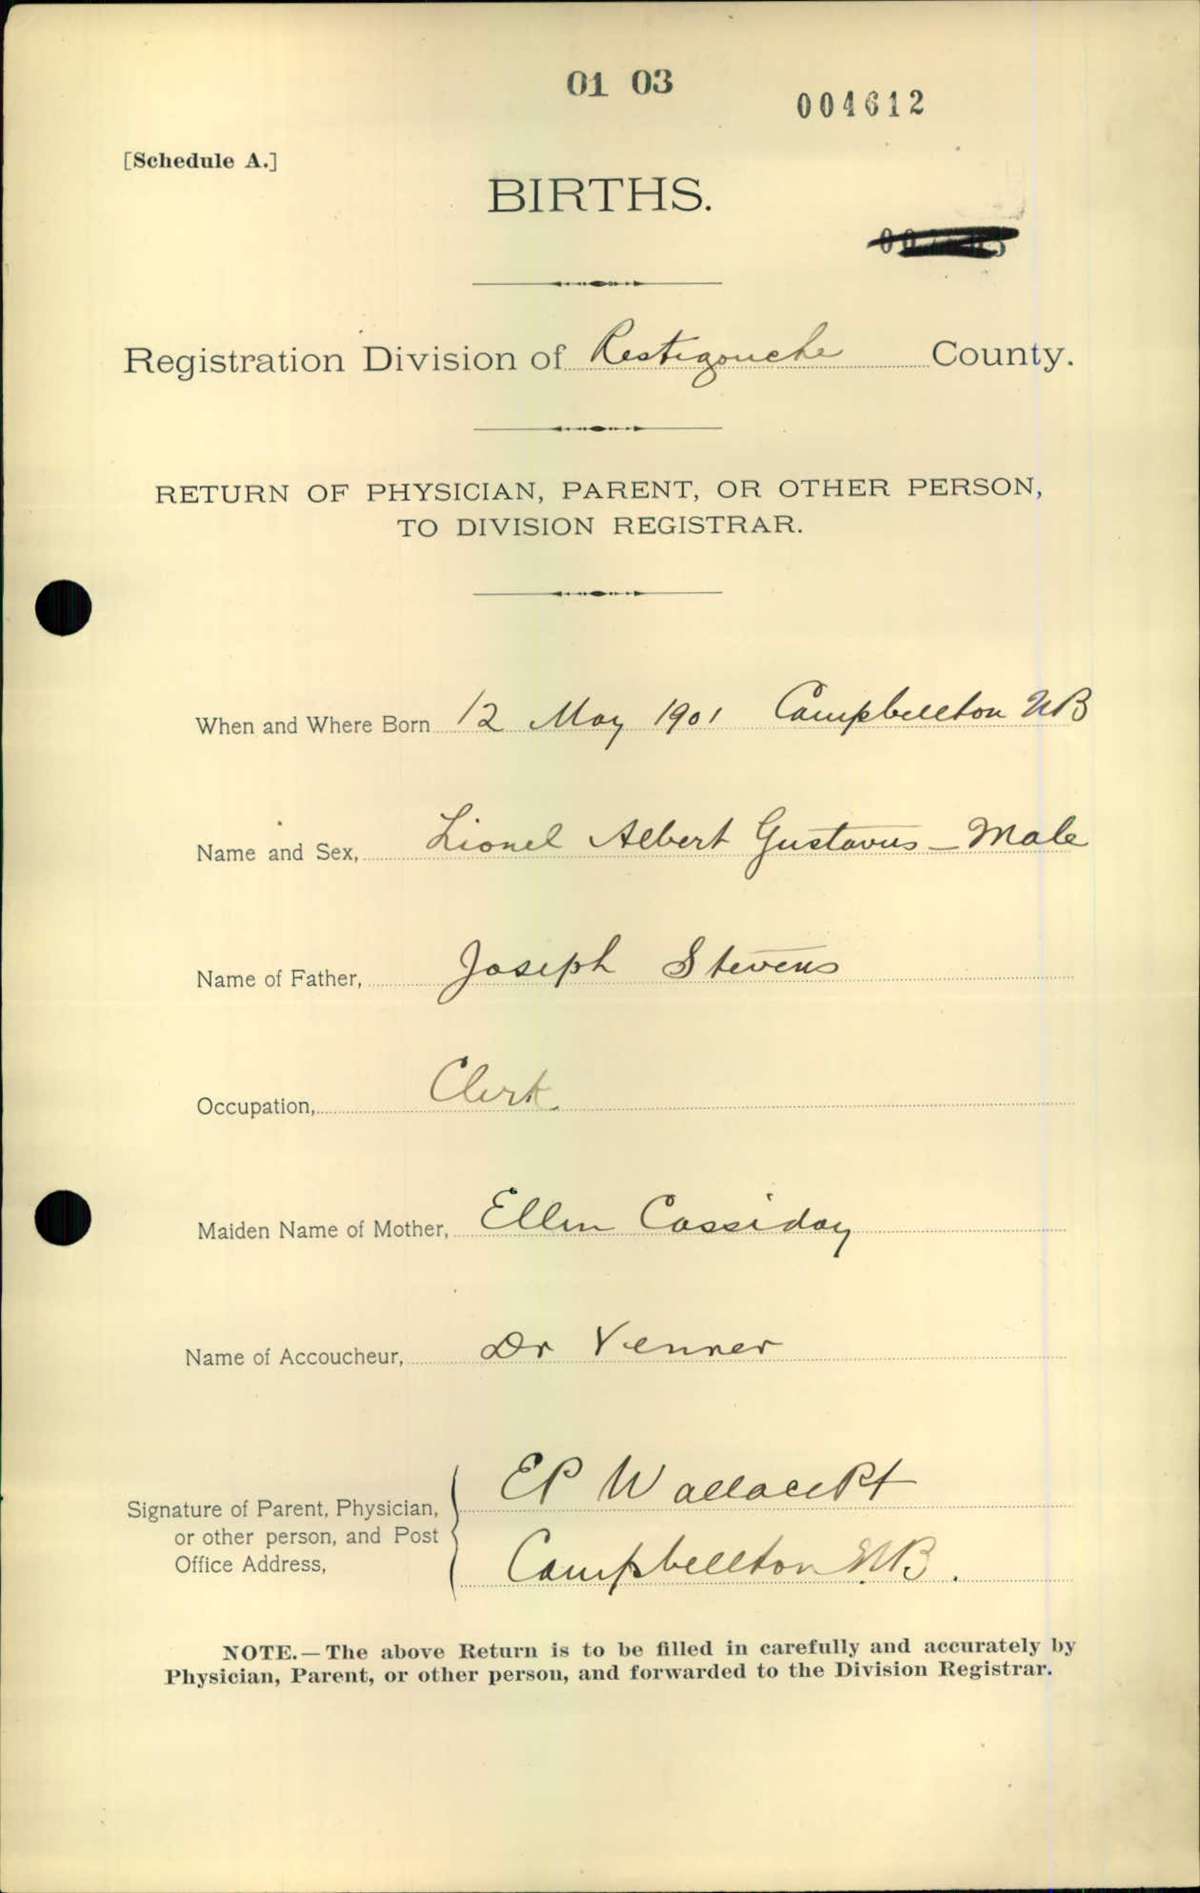 01 03
004612
[Schedule A.]
BIRTHS.
Registration Division of Restigouche County.
RETURN OF PHYSICIAN, PARENT, OR OTHER PERSON,
TO DIVISION REGISTRAR.
When and Where Born 12 May 1901 Campbellton NB
Name and Sex, Lionel Albert Gustavus - Male
Name of Father, Joseph Stevens
Occupation, Clerk.
Maiden Name of Mother, Ellen Cassiday
Name of Accoucheur, Dr Venner
Signature of Parent, Physician, EP Wallace
or other person, and Post
Office Address, Campbellton NB.
NOTE.—The above Return is to be filled in carefully and accurately by
Physician, Parent, or other person, and forwarded to the Division Registrar.